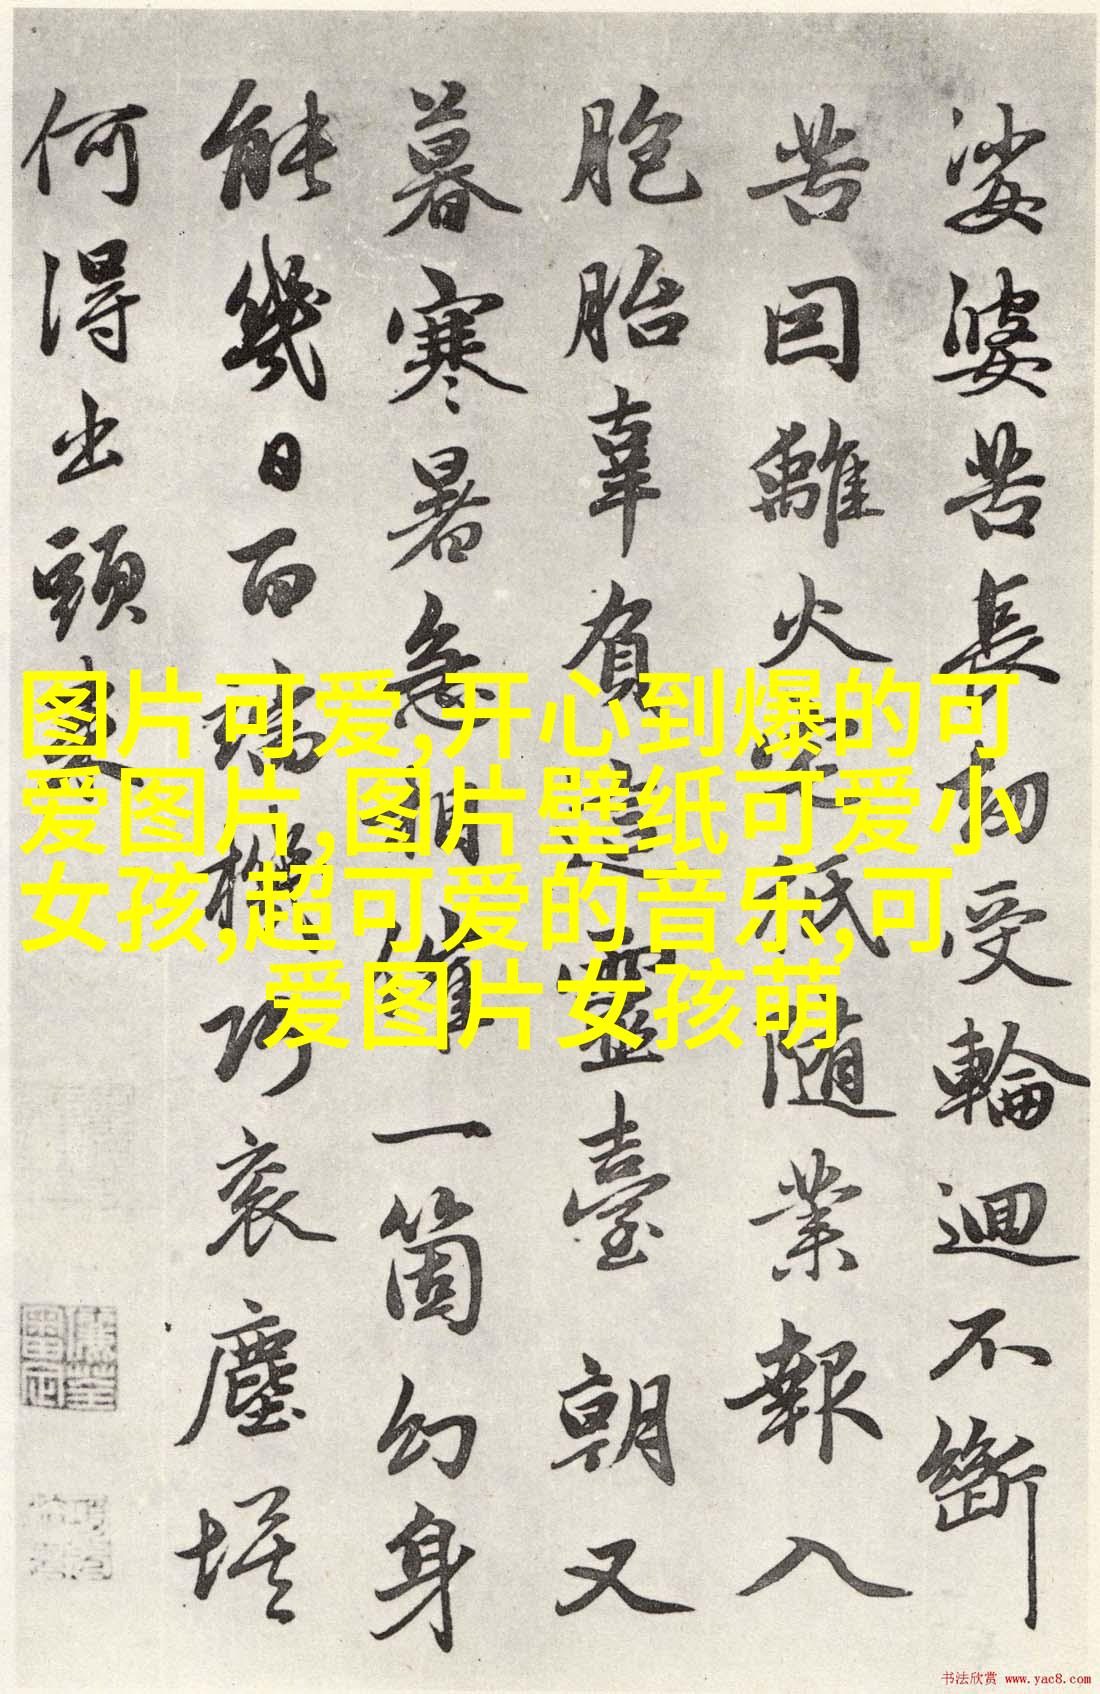 娑婆苦長劫受輪迴不斷
苦因離火宅秖随業報入
胞胎辜負這靈臺朝又
暮寒暑急相催一箇幻身
能幾日百端機巧衮塵埃
何得出頭来
图片可爱,开心到爆的可
爱图片,图片壁纸可爱小
女孩,超可爱的音乐,可
爱图片女孩萌
书法欣赏 www.yac8.com